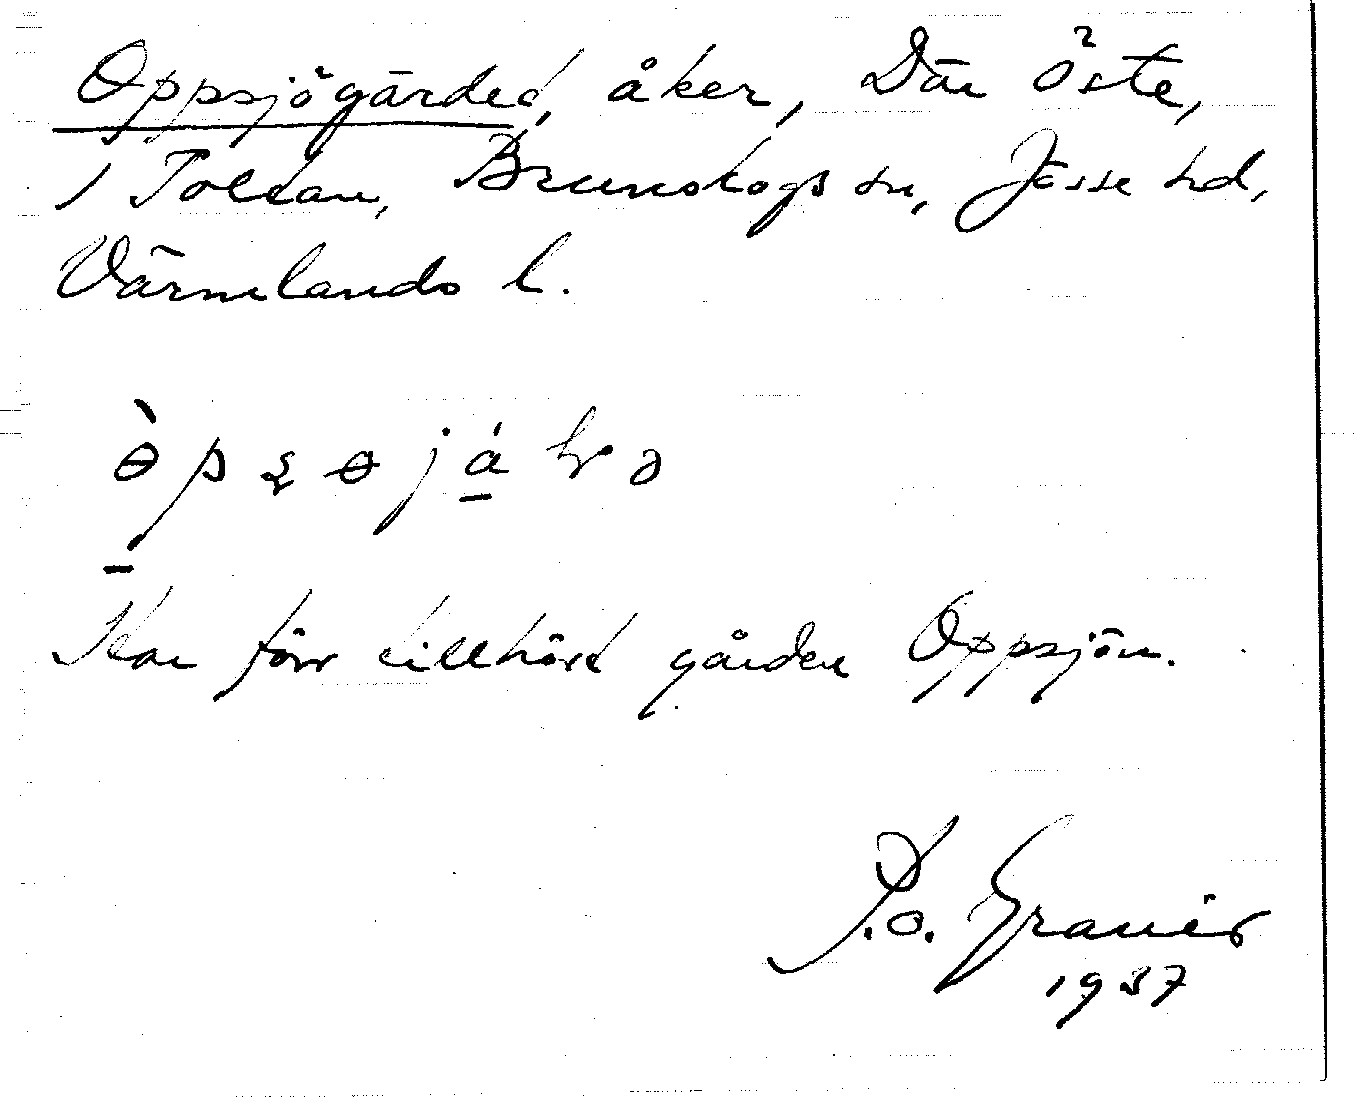 Oppsjögärdet, åker, Där Öste,
i Tolean, Brunskogs sn, Jösse hd,
Värmlands l.
Har förr tillhört gården Oppsjön.
P.O. Granér
1937